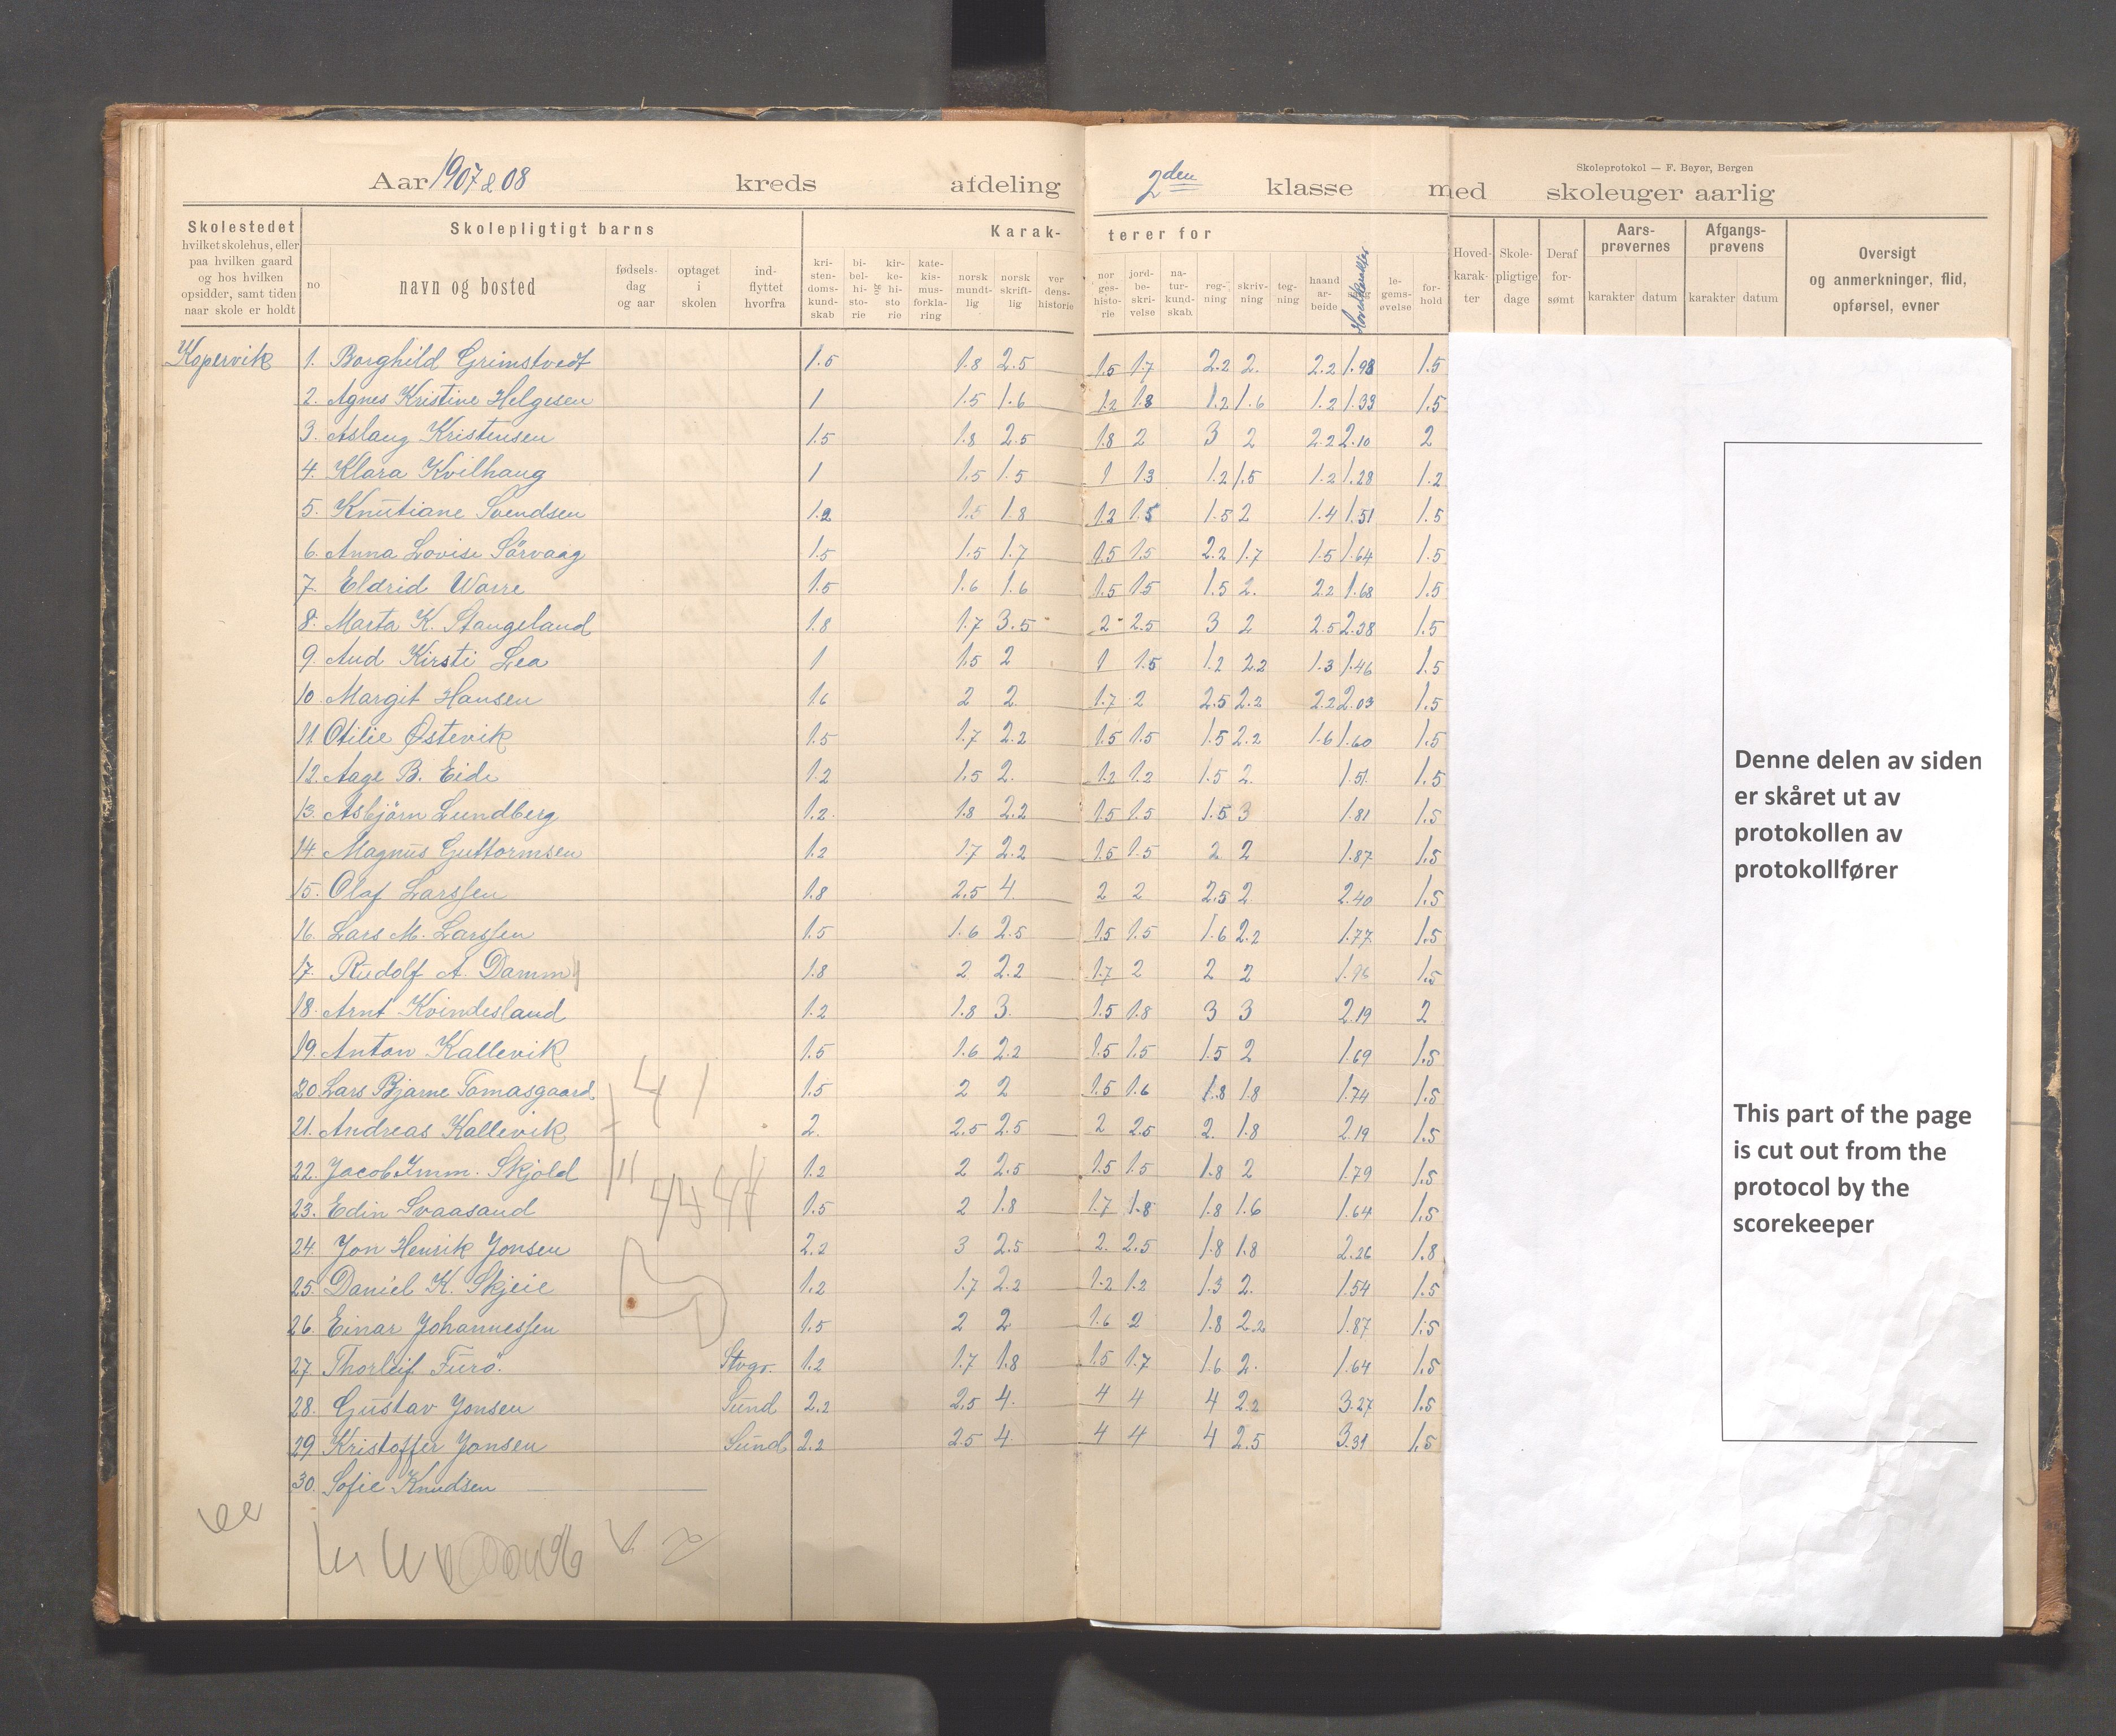 Skoleprotokol — F. Beyer, Bergen
Aar 1907 & 08 kreds afdeling 2den klasse med skoleuger aarlig
Skolestedet
hvilket skolehus, eller
paa hvilken gaard
og hos hvilken
opsidder, samt tiden
naar skole er holdt
Skolepligtigt barns
no
navn og bosted
fødsels-
dag
og aar
optaget
i
skolen
ind-
flyttet
hvorfra
Karak-
terer for
kri-
sten-
doms-
kund-
skab
bi-
bel-
hi-
sto-
rie
og
kir-
ke-
hi-
sto
rie
kate-
kis-
mus-
forkla-
ring
norsk
mundt-
lig
norsk
skrift-
lig
ver
dens-
historie
nor
ges-
histo-
rie
jord-
be-
skri-
velse
na-
tur-
kund-
skab.
reg-
ning
skriv-
ning
teg-
ning
haand
ar-
beide
Hovedkarakter
le-
gems-
øvelse
for-
hold
Hoved-
karak-
ter
Skole-
pligtige
dage
Deraf
for-
sømt
Aars-
prøvernes
karakter datum
Afgangs-
prøvens
karakter datum
Oversigt
og anmerkninger, flid,
opførsel, evner
Kopervik 1. Borghild Grimstvedt 1.5 1.8 2.5 1.5 1.7 2.2 2. 2.2 1.98 1.5
2. Agnes Kristine Helgesen 1 1.5 1.6 1.2 1.8 1.2 1.6 1.2 1.33 1.5
3. Aslaug Kristensen 1.5 1.8 2.5 1.8 2 3 2 2.2 2.10 2
4. Klara Kvilhaug 1 1.5 1.5 1 1.3 1.2 1.5 1.2 1.28 1.2
5. Knutiane Svendsen 1.2 1.5 1.8 1.2 1.5 1.5 2 1.4 1.51 1.5
6. Anna Lovise Sörvaag 1.5 1.5 1.7 1.5 1.5 2.2 1.7 1.5 1.64 1.5
7. Eldrid Warre 1.5 1.6 1.6 1.5 1.5 1.5 2. 2.2 1.68 1.5
8. Marta K. Stangeland 1.8 1.7 3.5 2 2.5 3 2 2.5 2.38 1.5
9. Aud Kirsti Lea 1 1.5 2 1 1.5 1.2 2.2 1.3 1.46 1.5
10. Margit Hansen 1.6 2 2. 1.7 2 2.5 2.2 2.2 2.03 1.5
11. Otilie Østevik 1.5 1.7 2.2 1.5 1.5 1.5 2.2 1.6 1.60 1.5
12. Aage B. Eide 1.2 1.5 2. 1.2 1.2 1.5 2. 1.51 1.5
13. Asbjörn Lundberg 1.2. 1.8 2.2 1.5 1.5 1.5 3 1.81 1.5
14. Magnus Guttormsen 1.2 1.7 2.2 1.5 1.5 2 2 1.87 1.5
15. Olaf Larssen 1.8 2.5 4. 2 2 2.5 2 2.40 1.5
16. Lars M. Larssen 1.5 1.6 2.5 1.5 1.5 1.6 2.2 1.77 1.5
17. Rudolf A. Damm 1.8 2 2.2 1.7 2 2 2 1.96 1.5
18. Arnt Kvindesland 1.2 1.8 3. 1.5 1.8 3 3 2.19 2
19. Anton Kallevik 1.5 1.6 2.2 1.5 1.5 1.5 2 1.69 1.5
20. Lars Bjarne Tomasgaard 1.5 2 2 1.5 1.6 1.8 1.8 1.74 1.5
21. Andreas Kallevik 2. 2.5 2.5 2 2.5 2. 1.8 2.19 1.5
22. Jacob Imm. Skjold 1.2 2 2.5 1.5 1.5 1.8 2 1.79 1.5
23. Edin Svaasand 1.5 2 1.8 1.7 1.8 1.8 1.6 1.64 1.5
24. Jon Henrik Jonsen 2.2 3 2.5 2. 2.5 1.8 1.8 2.26 1.8
25. Daniel K. Skjeie 1.2 1.7 2.2 1.2 1.2 1.3 2. 1.54 1.5
26. Einar Johannessen 1.5 2 2 1.6 2 1.8 2.2 1.87 1.5
27. Thorleif Furö. Stvgr. 1.2 1.7 1.8 1.5 1.7 1.6 2. 1.64 1.5
28. Gustav Jonsen Sund 2.2 2.5 4. 4 4 4 2.2 3.27 1.5
29. Kristoffer Jonsen Sund 2.2 2.5 4 4 4 4 2.5 3.31 1.5
30. Sofie Knudsen
Denne delen av siden
er skåret ut av
protokollen av
protokollfører
This part of the page
is cut out from the
protocol by the
scorekeeper